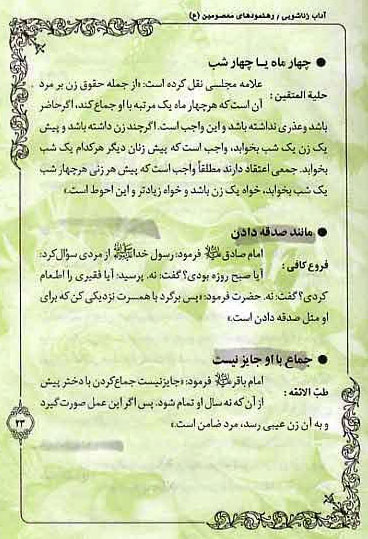 آداب زناشویی / رهنمودهای معصومین (ع)
● چهار ماه یا چهار شب
حلیة المتقین: علامه مجلسی نقل کرده است: «از جمله حقوق زن بر مرد
آن است که هر چهار ماه یک مرتبه با او جماع کند، اگر حاضر
باشد و عذری نداشته باشد و این واجب است. اگر چند زن داشته باشد و پیش
یک زن یک شب بخوابد، واجب است که پیش زنان دیگر هرکدام یک شب
بخوابد. جمعی اعتقاد دارند مطلقاً واجب است که پیش هر زنی هر چهار شب
یک شب بخوابد، خواه یک زن باشد و خواه زیادتر و این احوط است.»
● مانند صدقه دادن
فروع کافی: امام صادق علیه السلام فرمود: رسول خدا ﷺ از مردی سؤال کرد:
آیا صبح روزه بودی؟ گفت: نه. پرسید: آیا فقیری را اطعام
کردی؟ گفت: نه. حضرت فرمود: «پس برگرد با همسرت نزدیکی کن که برای
او مثل صدقه دادن است.»
● جماع با او جایز نیست
طبّ الائمه: امام باقر علیه السلام فرمود: «جایز نیست جماع کردن با دختر پیش
از آن که نه سال او تمام شود. پس اگر این عمل صورت گیرد
و به آن زن عیبی رسد، مرد ضامن است.»
۲۳